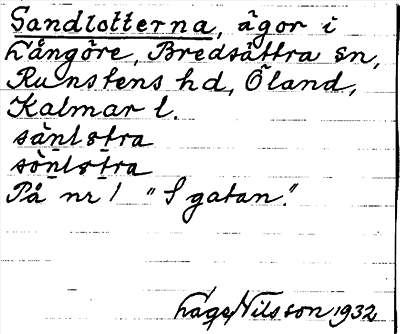 Sandlotterna, ägor i
Långöre, Bredsättra sn,
Runstens hd, Öland,
Kalmar l.
På nr 1 "S gatan."
Lage Nilsson 1932